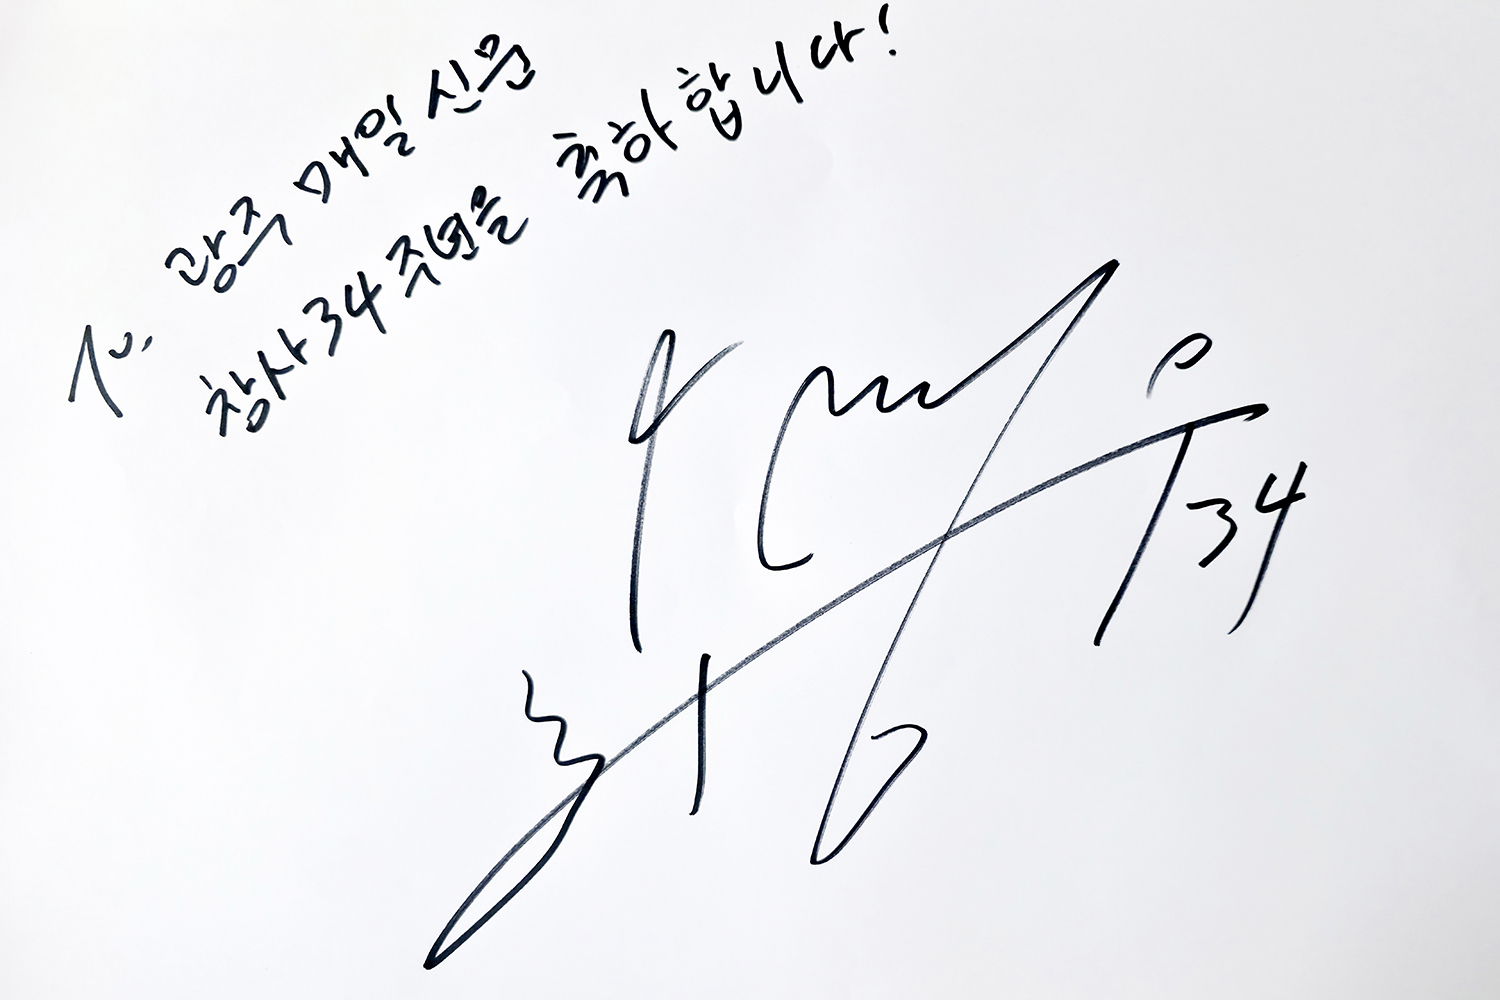 To. 광주매일신문
창사 34주년을 축하합니다!
34